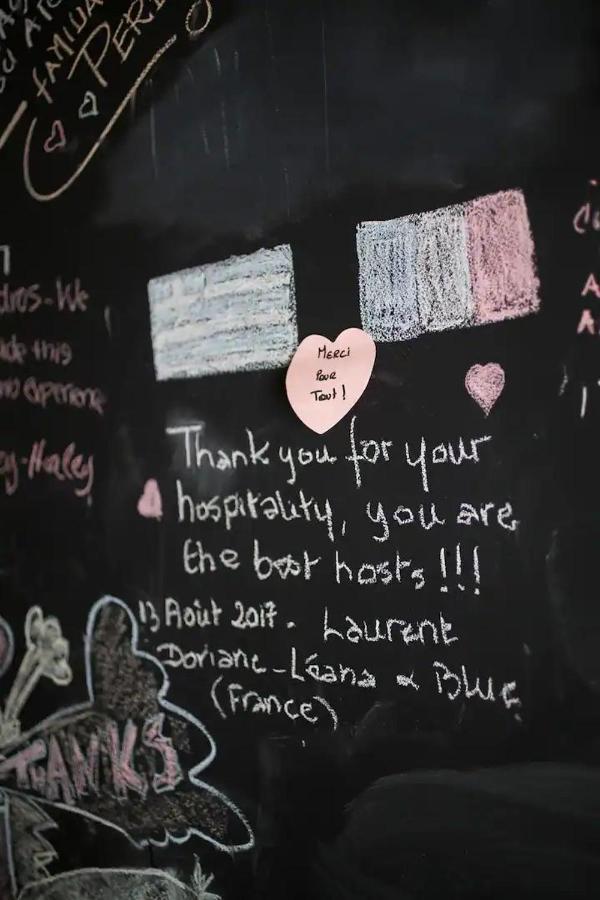 FAMILIA
PERE
dros-We
this
experience
y-Haley
MERCI
POUR
TOUT!
Thank you for your
hospitality, you are
the best hosts!!!
13 Août 2017. Laurent
Doriane-Léana & Blue
(France)
TANKS